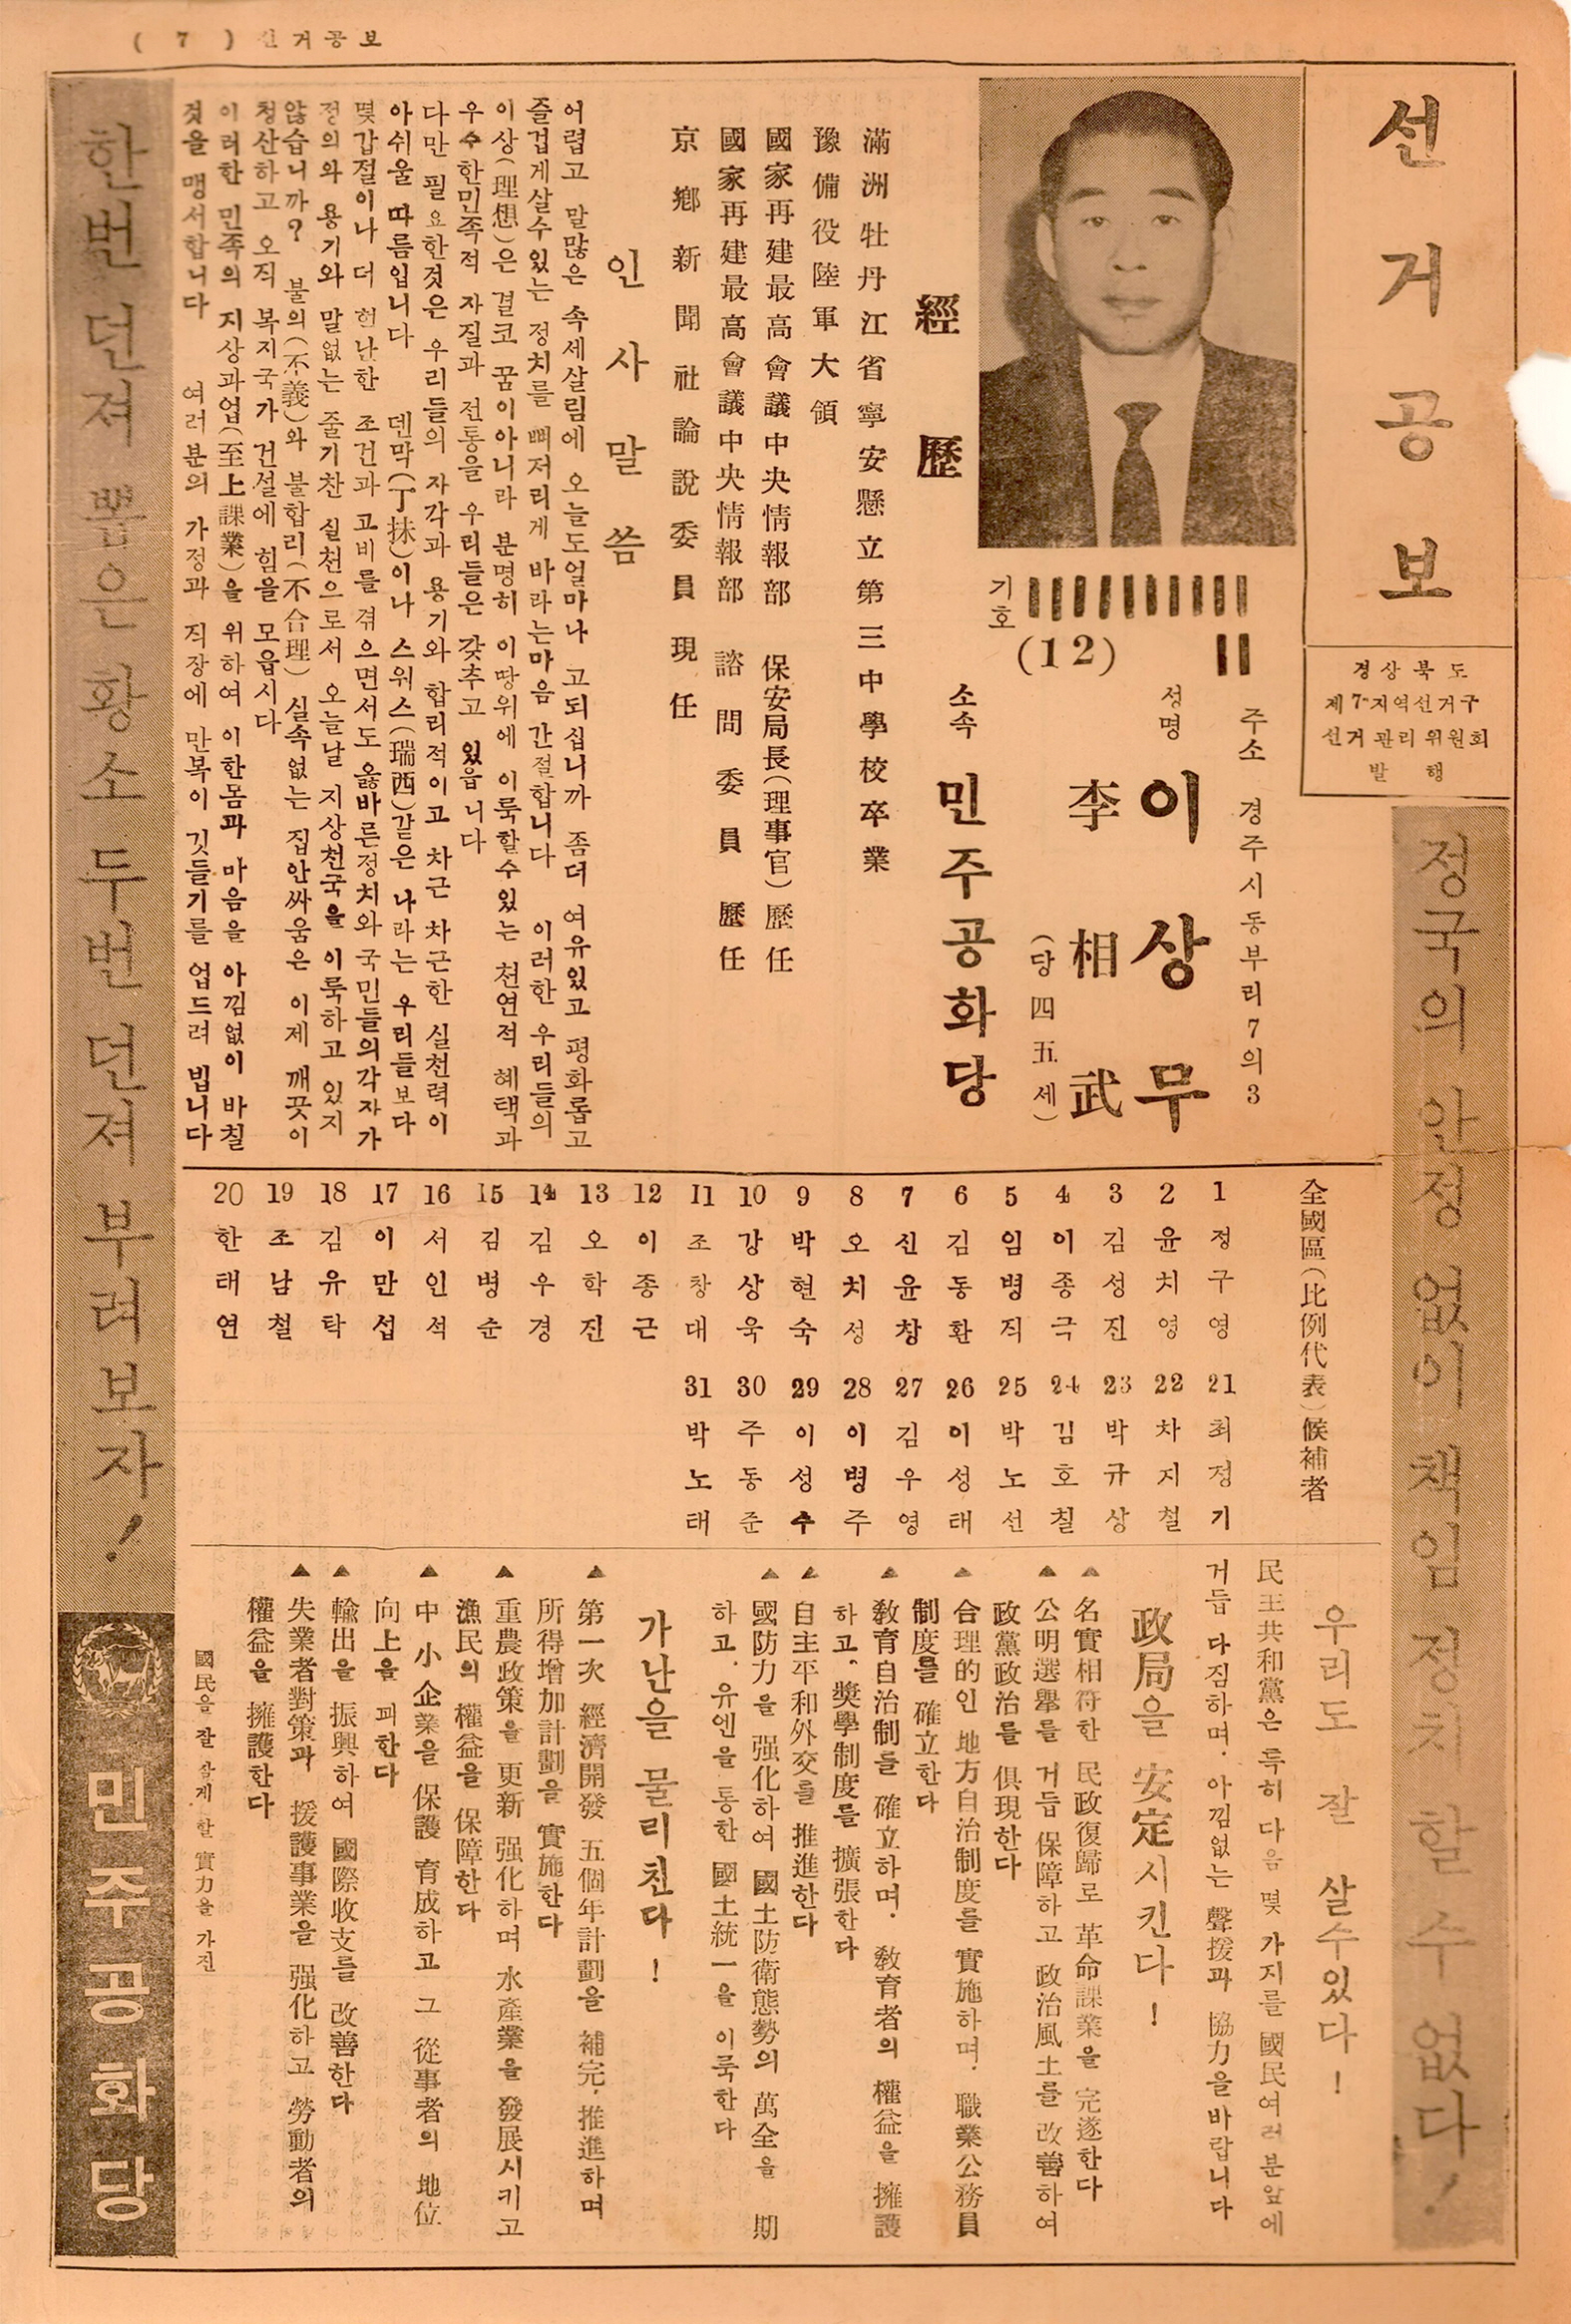 ( 7 ) 선거공보
선거공보
경상북도
제7지역선거구
선거관리위원회
발 행
정국의 안정 없이 책임 정치 할 수 없다!
기호
(12)
주소 경주시동부리7의3
성명
이상무
李相武
(당四五세)
소속
민주공화당
經歷
滿洲牡丹江省寧安懸立第三中學校卒業
豫備役陸軍大領
國家再建最高會議中央情報部 保安局長(理事官)歷任
國家再建最高會議中央情報部 諮問委員 歷任
京鄉新聞社論說委員現任
인사말씀
어렵고 말많은 속세살림에 오늘도얼마나 고되십니까 좀더 여유있고 평화롭고
즐겁게살수있는 정치를 뼈저리게 바라는마음 간절합니다 이러한 우리들의
이상(理想)은 결코 꿈이아니라 분명히 이땅위에 이룩할수있는 천연적 혜택과
우수한민족적 자질과 전통을 우리들은 갖추고 있읍니다
다만 필요한것은 우리들의 자각과 용기와 합리적이고 차근 차근한 실천력이
아쉬울 따름입니다 덴막(丁抹)이나 스위스(瑞西)같은 나라는 우리들보다
몇갑절이나 더 헌난한 조건과 고비를 겪으면서도 옳바른정치와 국민들의각자가
정의와 용기와 말없는 줄기찬 실천으로서 오늘날 지상천국을 이룩하고 있지
않습니까? 불의(不義)와 불합리(不合理) 실속없는 집안싸움은 이제 깨끗이
청산하고 오직 복지국가 건설에 힘을 모읍시다
이러한 민족의 지상과업(至上課業)을 위하여 이한몸과 마음을 아낌없이 바칠
것을 맹서합니다 여러분의 가정과 직장에 만복이 깃들기를 업드려 빕니다
全國區(比例代表)候補者
1 정구영
2 윤치영
3 김성진
4 이종극
5 임병직
6 김동환
7 신윤창
8 오치성
9 박현숙
10 강상욱
11 조창대
12 이종근
13 오학진
14 김우경
15 김병순
16 서인석
17 이만섭
18 김유탁
19 조남철
20 한태연
21 최정기
22 차지철
23 박규상
24 김호칠
25 박노선
26 이성태
27 김우영
28 이병주
29 이성수
30 주동준
31 박노태
우리도 잘 살수있다!
民主共和黨은 특히 다음 몇 가지를 國民여러분앞에
거듭 다짐하며. 아낌없는 聲援과 協力을바랍니다
政局을 安定시킨다!
▲名實相符한 民政復歸로 革命課業을 完遂한다
▲公明選擧를 거듭 保障하고 政治風土를 改善하여
政黨政治를 俱現한다
▲合理的인 地方自治制度를 實施하며. 職業公務員
制度를 確立한다
▲敎育自治制를 確立하며. 敎育者의 權益을 擁護
하고. 奬學制度를 擴張한다
▲自主平和外交를 推進한다
▲國防力을 强化하여 國土防衛態勢의 萬全을 期
하고. 유엔을 통한 國土統一을 이룩한다
가난을 물리친다!
▲第一次 經濟開發 五個年計劃을 補完, 推進하며
所得增加計劃을 實施한다
▲重農政策을 更新 强化하며 水產業을 發展시키고
漁民의 權益을 保障한다
▲中小企業을 保護 育成하고 그 從事者의 地位
向上을 꾀한다
▲輸出을 振興하여 國際收支를 改善한다
▲失業者對策과 援護事業을 强化하고 勞動者의
權益을 擁護한다
國民을 잘 살게 할 實力을 가진
한번 던져 뽑은 황소 두번 던져 부려보자!
민주공화당